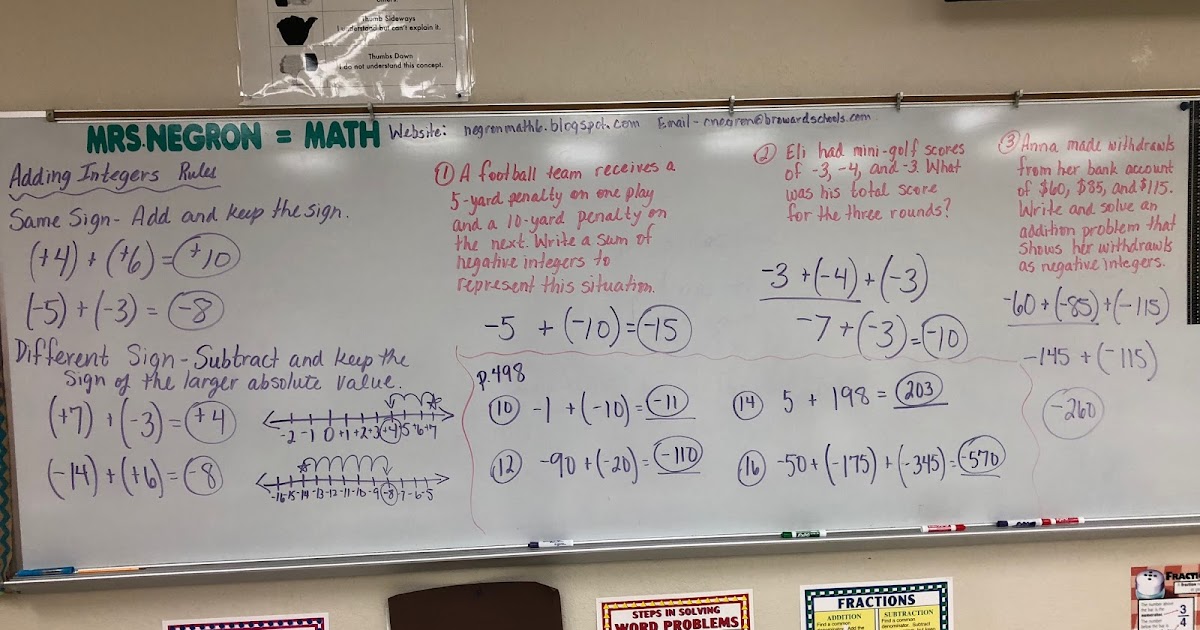 others.
Thumb Sideways
I understand but can't explain it.
Thumbs Down
I do not understand this concept.
MRS. NEGRON = MATH Website: negronmath6.blogspot.com Email- cnegron@browardschools.com
Adding Integers Rules
Same Sign- Add and keep the sign.
(+4) + (+6) = +10
(-5) + (-3) = -8
Different Sign - Subtract and keep the
Sign of the larger absolute value.
(+7) + (-3) = +4
-2 -1 0 +1 +2 +3 +4 +5 +6 +7
(-14) + (+6) = -8
-16 -15 -14 -13 -12 -11 -10 -9 -8 -7 -6 -5
① A football team receives a
5-yard penalty on one play
and a 10-yard penalty on
the next. Write a sum of
negative integers to
represent this situation.
-5 + (-10) = -15
② Eli had mini-golf scores
of -3, -4, and -3. What
was his total score
for the three rounds?
-3 + (-4) + (-3)
-7 + (-3) = -10
③ Anna made withdrawls
from her bank account
of $60, $85, and $115.
Write and solve an
addition problem that
shows her withdrawls
as negative integers.
-60 + (-85) + (-115)
-145 + (-115)
-260
p.498
⑩ -1 + (-10) = -11
⑫ -90 + (-20) = -110
⑭ 5 + 198 = 203
⑯ -50 + (-175) + (-345) = -570
STEPS IN SOLVING
WORD PROBLEMS
FRACTIONS
ADDITION
Find a common
denominator. Add the
SUBTRACTION
Find a common
denominator. Subtract
FRACTION
The number above
the bar is the
numerator
The number
below the bar is
3
4